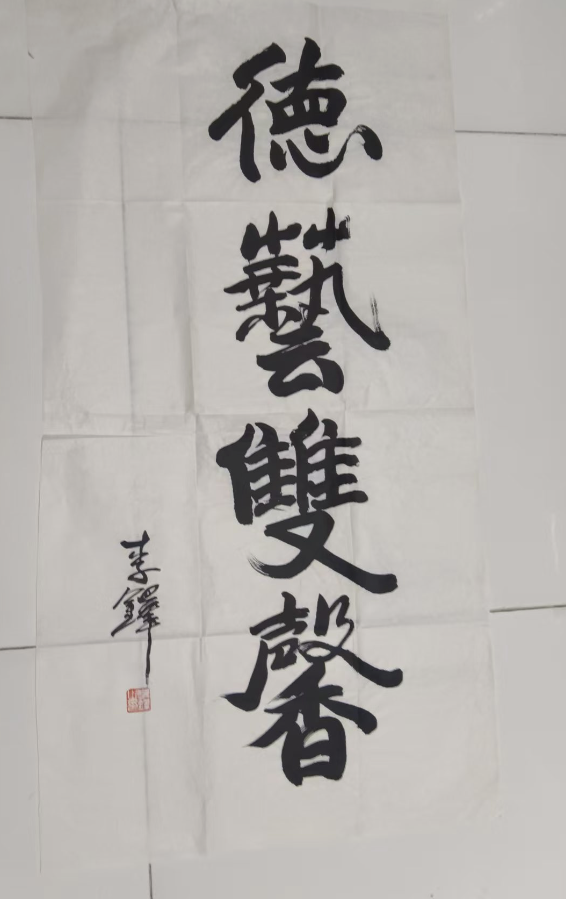 德藝雙馨
李鐸